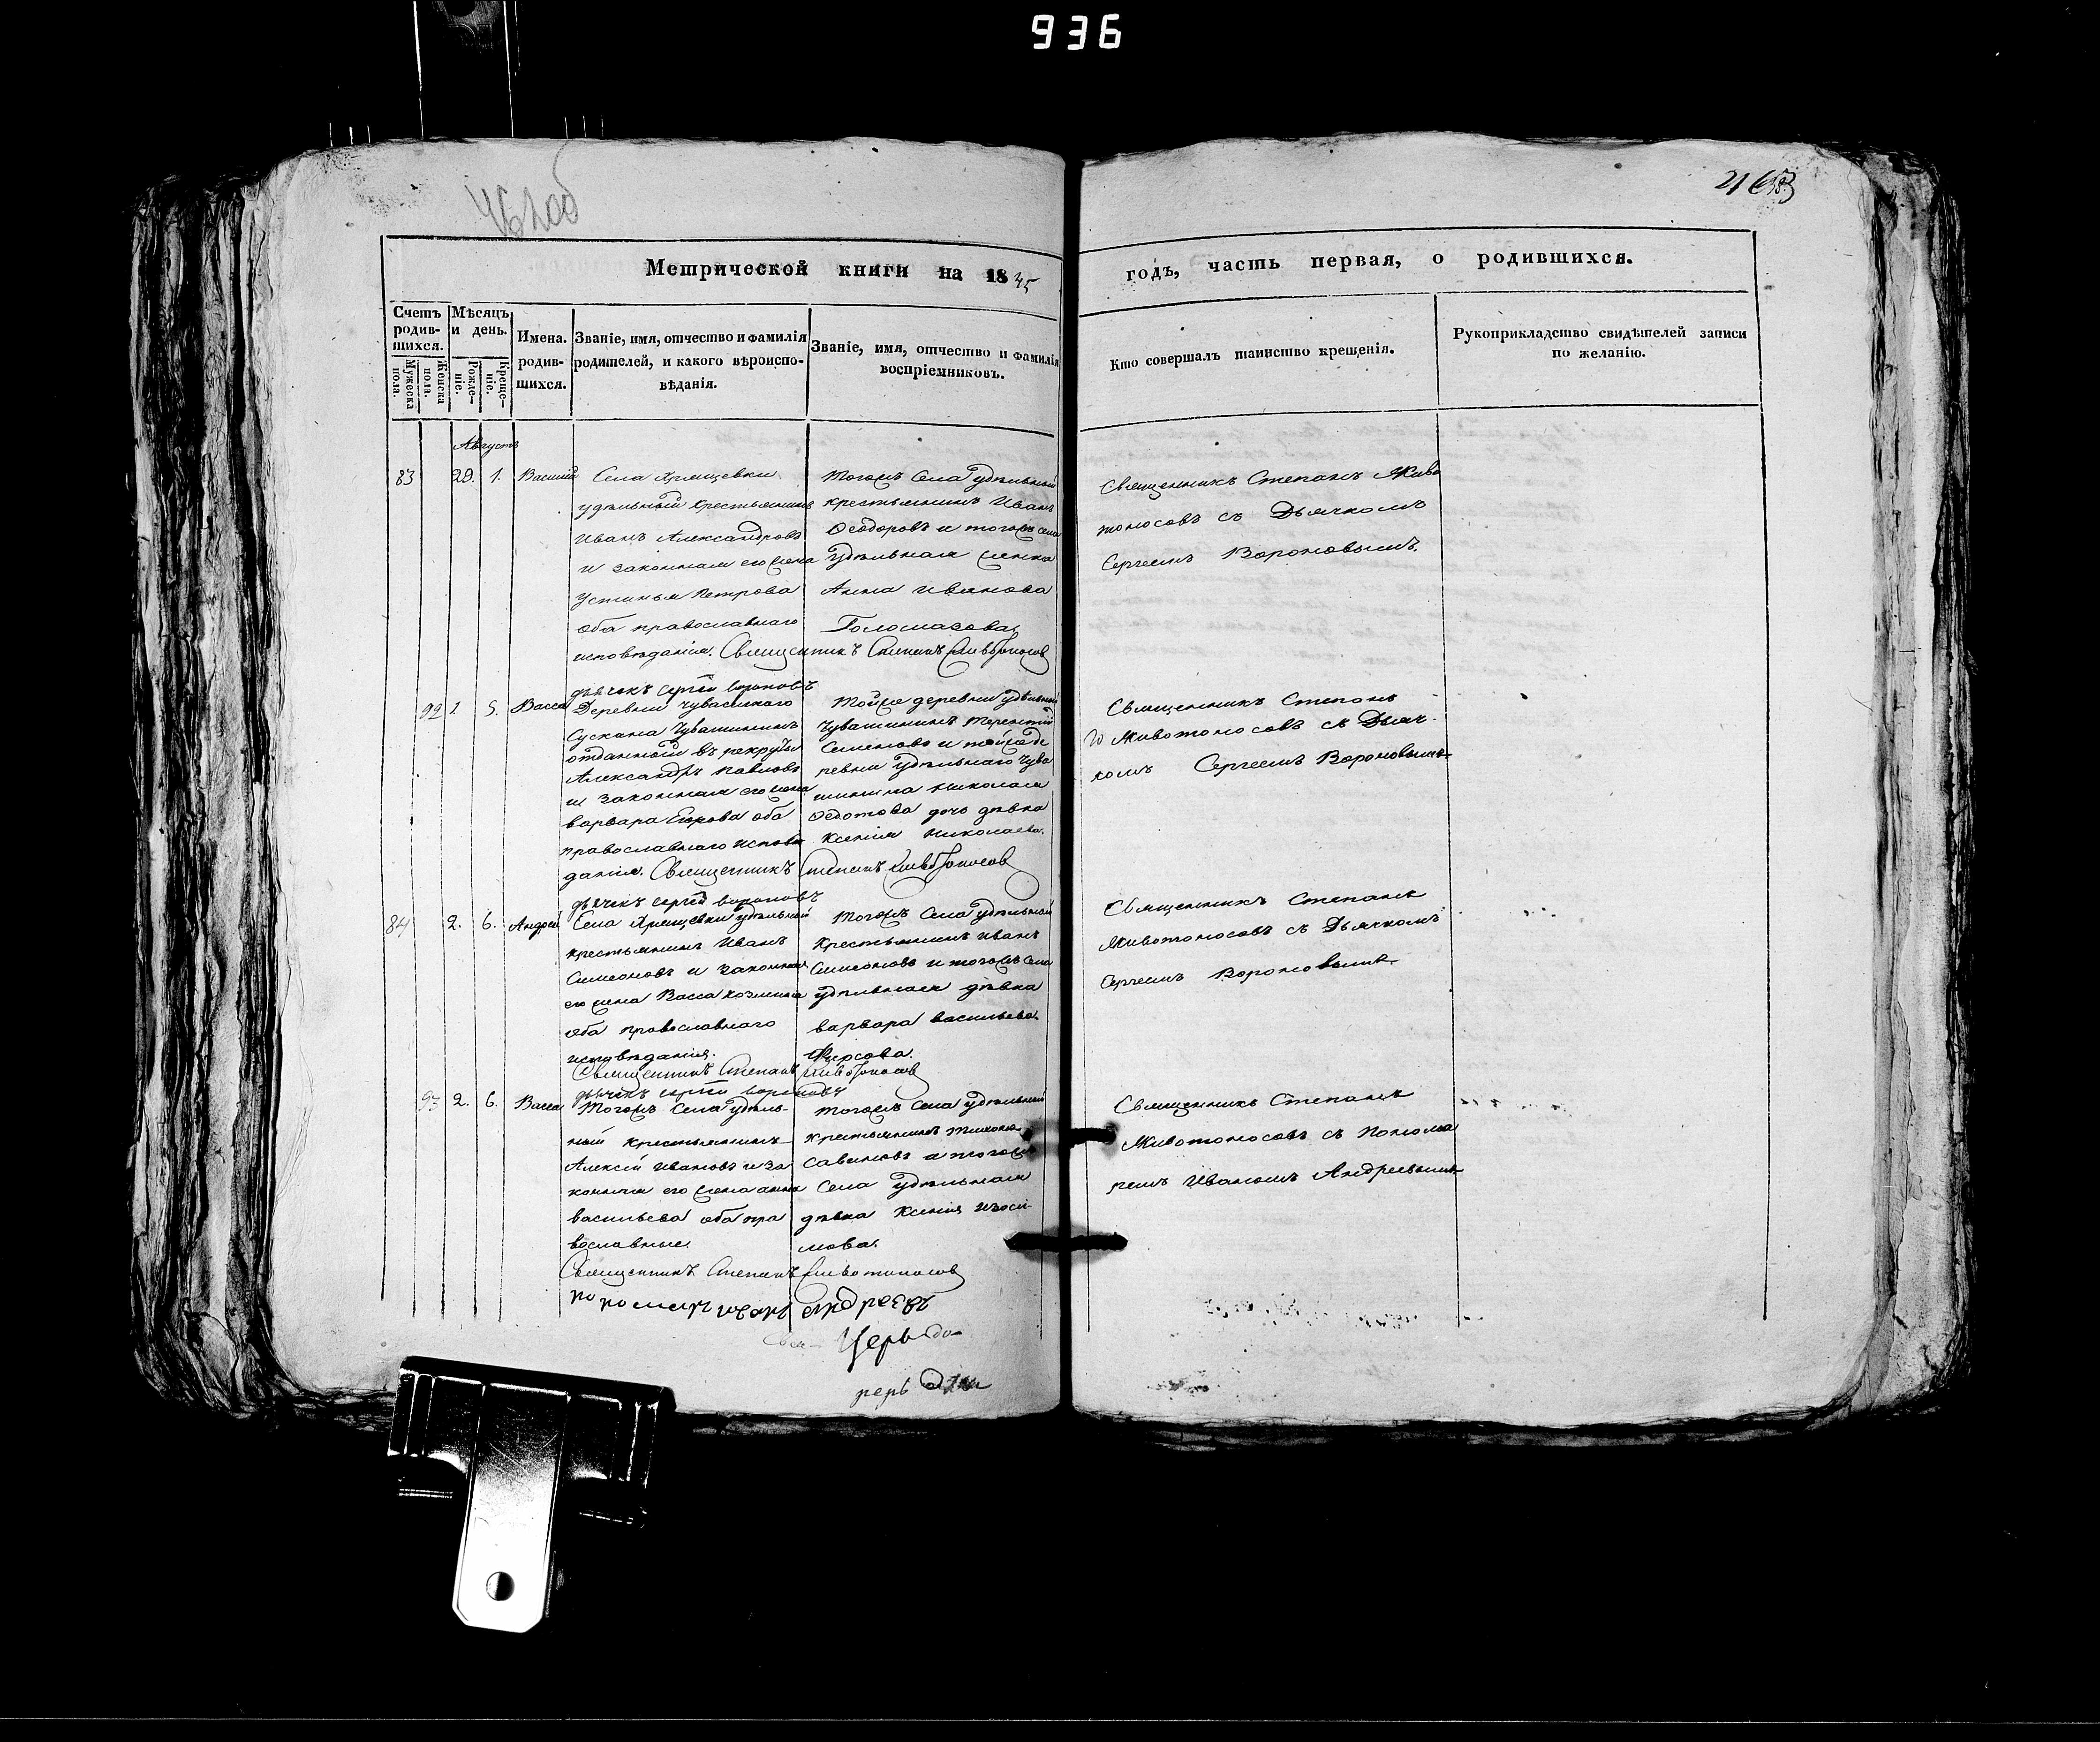 936
462 об
Метрической книги на 1845
годъ, часть первая, о родившихся.
Счетъ родив-шихся.
Мужеска пола.
Женска пола.
Мѣсяцъ и день.
Рожде-ніе.
Креще-ніе.
Имена. родив-шихся.
Званіе, имя, отчество и фамилія родителей, и какого вѣроиспо-вѣданія.
Званіе, имя, отчество и фамилія воспріемниковъ.
Кто совершалъ таинство крещенія.
Рукоприкладство свидѣтелей записи по желанію.
Августъ
83
29. 1. Василій
Села Хрящевки
удѣльный крестьянинъ
Иванъ Александровъ
и законная его жена
Устинья Петрова
оба православнаго
исповѣданія. Священникъ Степанъ Животоносов
дьячекъ Сергей Вороновъ
Тогожъ Села удѣльный
крестьянинъ Иванъ
Ѳеодоровъ и тогожъ села
удѣльная женка
Анна Иванова
Голомазова
Священникъ Степанъ Живо
тоносовъ съ Дьячкомъ
Сергеемъ Вороновымъ.
92 1 5. Васса
Деревни Чувашскаго
Сускана Чувашининъ
отданной въ рекруты
Александръ Павловъ
и законная его жена
Варвара Егорова оба
православнаго исповѣ
данія. Священникъ Степанъ Животоносов
дьячекъ Сергей Вороновъ
Тойже деревни удѣльный
Чувашининъ Терентий
Семеновъ и тойже де
ревни удѣльнаго Чува
шинина Николая
Ѳедотова дочь дѣвка
Ксенія Николаева.
Священникъ Степанъ
Животоносовъ съ Дьяч-
комъ Сергеемъ Вороновымъ
84 2. 6. Андрей
Села Хрящевки удѣльный
крестьянинъ Иванъ
Симеоновъ и законная
его жена Васса Козмина
оба православнаго
исповѣданія.
Священникъ Степанъ Животоносов
дьячекъ Сергей Вороновъ
Тогожъ Села удѣльный
Крестьянинъ Иванъ
Симеоновъ и тогожъ Села
удѣльная дѣвка
Варвара Васильева
Фирсова.
Священникъ Степанъ
Животоносовъ съ Дьячкомъ
Сергеемъ Вороновымъ
93 2. 6. Васса
Тогожъ Села удѣль-
ный крестьянинъ
Алексій Ивановъ и за
конная его жена Анна
Васильева оба пра
вославные.
Священникъ Степанъ Животоносов
пономарь Иванъ Андреевъ
Тогожъ Села удѣльный
крестьянинъ
Савиновъ и тогожъ
Села удѣльная
дѣвка Ксенія Изоси-
мова.
Священникъ Степанъ
Животоносовъ съ Понома
ремъ Иваномъ Андреевымъ